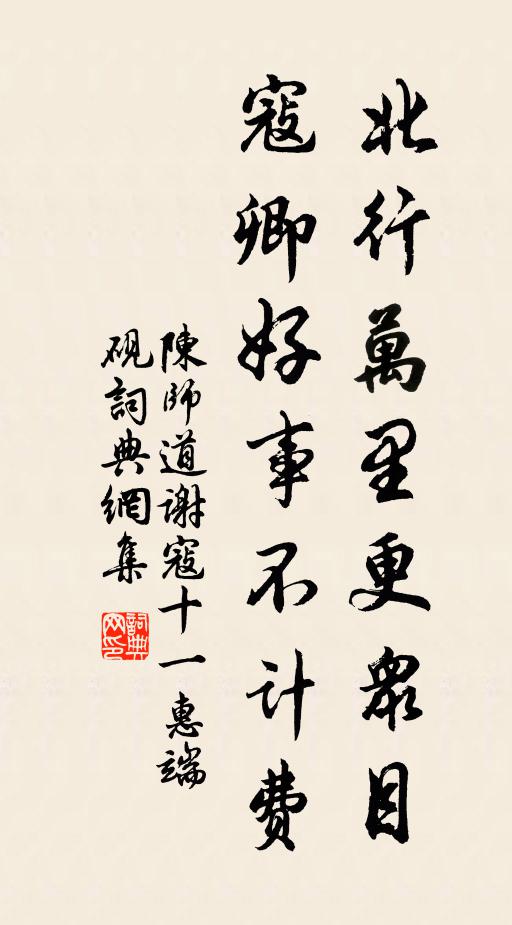 北行萬里更眾目
寇卿好事不計費
陳師道謝寇十一惠端
硯詞典網集
詞典网印